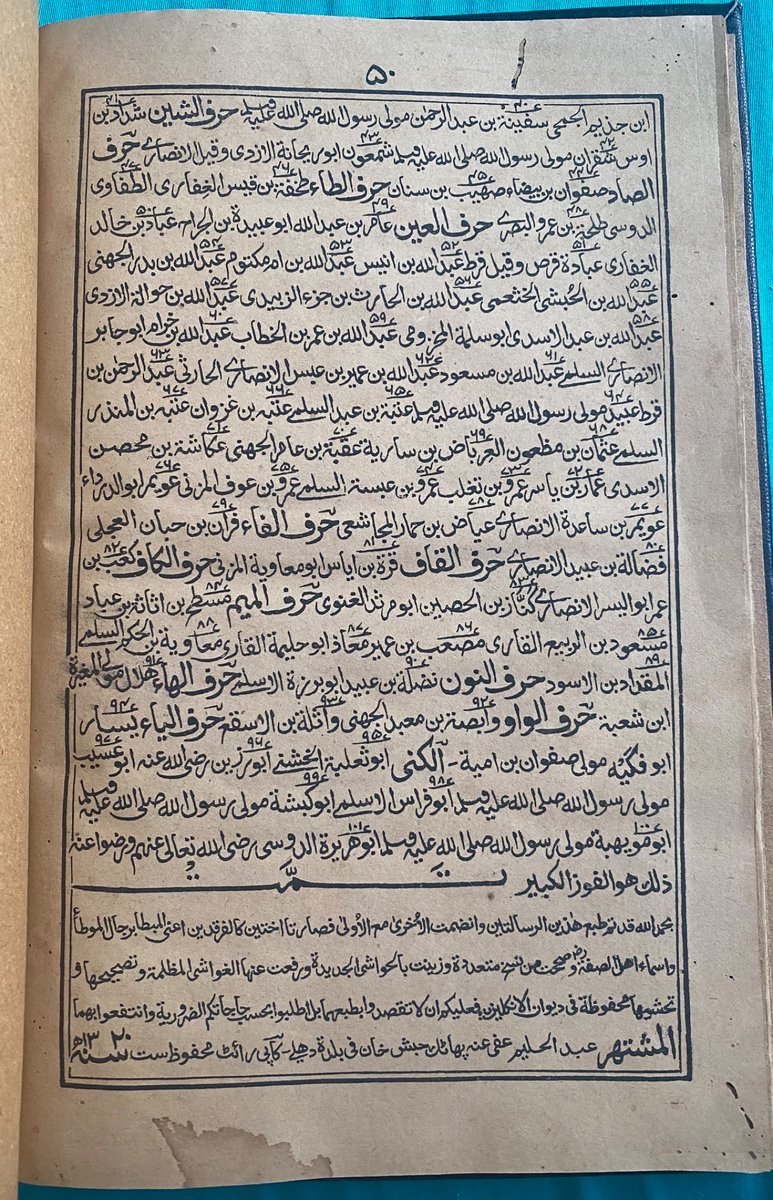 ٥٠
ابن جذيم الجمحي سفينة بن عبد الرحمٰن مولى رسول الله صلى الله عليه وسلم حرف الشين شداد بن
اوس شقران مولى رسول الله صلى الله عليه وسلم شمعون ابو ريحانة الازدى وقيل الانصارى حرف
الصاد صفوان بن بيضاء صهيب بن سنان حرف الطاء طخفة بن قيس الغفارى الطفاوى
الدوسى طلحة بن عمرو البصرى حرف العين عامر بن عبد الله ابو عبيدة بن الجراح عباد بن خالد
الغفارى عبادة قرص وقيل قرط عبد الله بن انيس عبد الله بن ام مكتوم عبد الله بن بدر الجهنى
عبد الله بن الحبشى الخثعمى عبد الله بن الحارث بن جزء الزبيدى عبد الله بن حوالة الازدى
عبد الله بن عبد الاسدى ابو سلمة المخزومى عبد الله بن عمر بن الخطاب عبد الله بن حرام ابو جابر
الانصارى السلمى عبد الله بن مسعود عبد الله بن عمير بن عبس الانصارى الحارثى عبد الرحمٰن بن
قرط عبيد مولى رسول الله صلى الله عليه وسلم عتبة بن عبد السلمى عتبه بن غزوان عتبه بن المنذر
السلمى عثمان بن مظعون العرباض بن سارية عقبة بن عامر الجهنى عكاشة بن محصن
الاسدى عمار بن ياسر عمرو بن تغلب عمرو بن عبسة السلمى عمرو بن عوف المزنى عويمر ابو الدرداء
عويمر بن ساعدة الانصارى عياض بن حمار المجاشعى حرف الفاء فرات بن حيان العجلى
فضالة بن عبيد الانصارى حرف القاف قرة بن اياس ابو معاوية المزنى حرف الكاف كعب بن
عمر ابو اليسر الانصارى كناز بن الحصين ابو مرثد الغنوى حرف الميم مسطح بن اثاثة بن عباد
مسعود بن الربيع القارى مصعب بن عمير معاذ ابو حليمة القارى معاوية بن الحكم السلمى
المقداد بن الاسود حرف النون نضلة بن عبيد ابو برزة الاسلمى حرف الهاء هلال مولى المغيرة
ابن شعبة حرف الواو وابصة بن معبد الجهنى واثلة بن الاسقع حرف الياء يسار
ابو فكيه مولى صفوان بن امية - الكنى ابو ثعلبة الخشنى ابو رزين رضى الله عنه ابو عسيب
مولى رسول الله صلى الله عليه وسلم ابو فراس الاسلمى ابو كبشة مولى رسول الله صلى الله عليه وسلم
ابو مويهبة مولى رسول الله صلى الله عليه وسلم ابو هريرة الدوسى رضى الله تعالى عنهم ورضوا عنه
ذلك هو الفوز الكبير تمت
بحمد الله قد تم طبع هذين الرسالتين وانضمت الاخرى مع الأولى فصارتا اختين كالفرقدين اعنى المبطا برجال الموطأ
واسماء اهل الصفة وصححت من نسخ متعددة وزينت بالحواشى الجديدة ورفعت عنها الغواشى المظلمة وتصحيحها و
تحشيها محفوظة فى ديوان الانكليز فعليكم ان لا تقصدوا بطبعهما بل اطلبوا بحسب حاجاتكم الضرورية وانتفعوا بهما
المشتهر عبد الحليم عفى عنه پهاٹک حبش خان فى بلدة دهلى - کاپی رائٹ محفوظ ست سنه ١٣٢٠ھ